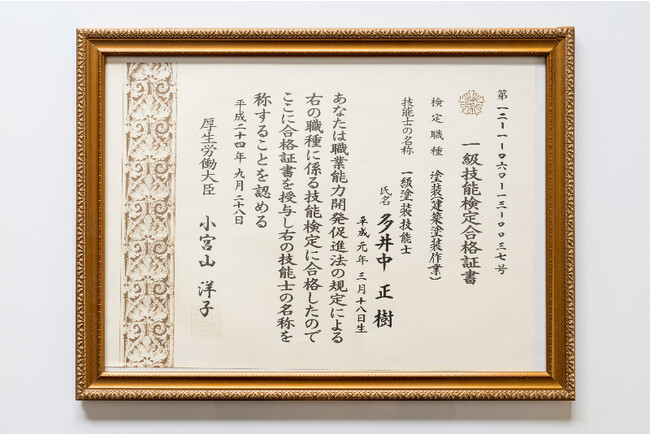 第一二-一-〇六〇-一三-〇〇三七号
一級技能検定合格証書
検定職種 塗装(建築塗装作業)
技能士の名称 一級塗装技能士
氏名 多井中 正樹
平成元年三月十八日生
あなたは職業能力開発促進法の規定による
右の職種に係る技能検定に合格したので
ここに合格証書を授与し右の技能士の名称を
称することを認める
平成二十四年九月二十八日
厚生労働大臣 小宮山 洋子